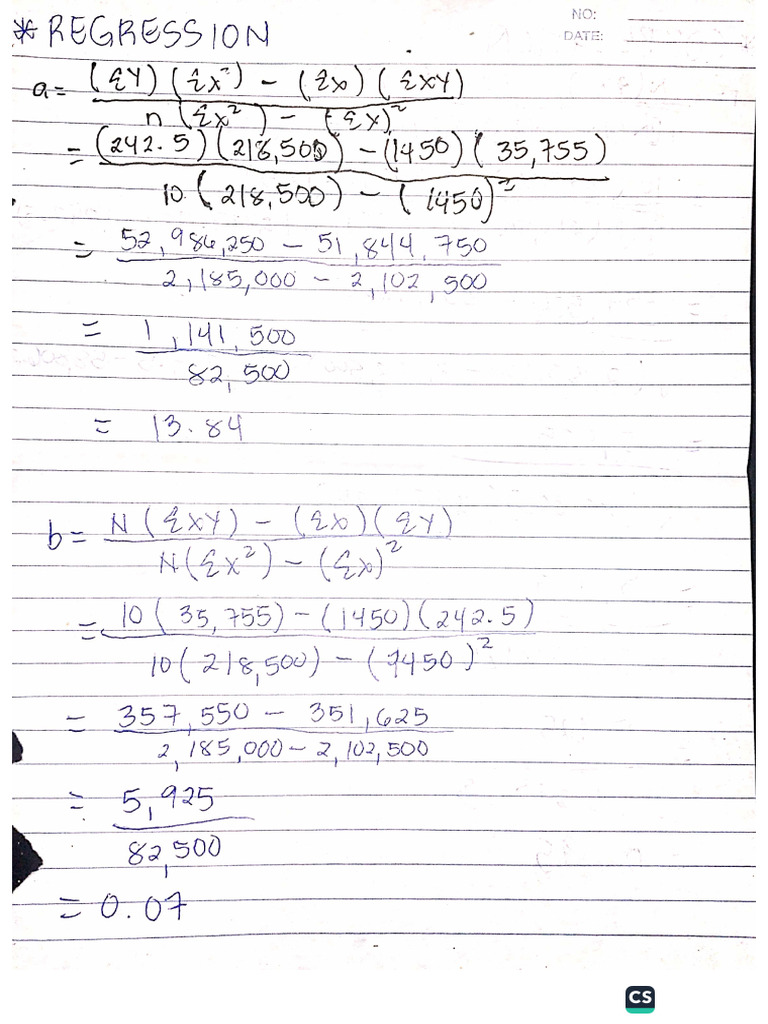 NO:
* REGRESSION
DATE:
a = (ΣY)(Σx²) - (Σx)(Σxy)
n(Σx²) - (Σx)²
= (242.5)(218,500) - (1450)(35,755)
10(218,500) - (1450)²
= 52,986,250 - 51,844,750
2,185,000 - 2,102,500
= 1,141,500
82,500
= 13.84
b = N(ΣXY) - (Σx)(ΣY)
N(Σx²) - (Σx)²
= 10(35,755) - (1450)(242.5)
10(218,500) - (1450)²
= 357,550 - 351,625
2,185,000 - 2,102,500
= 5,925
82,500
= 0.07
CS